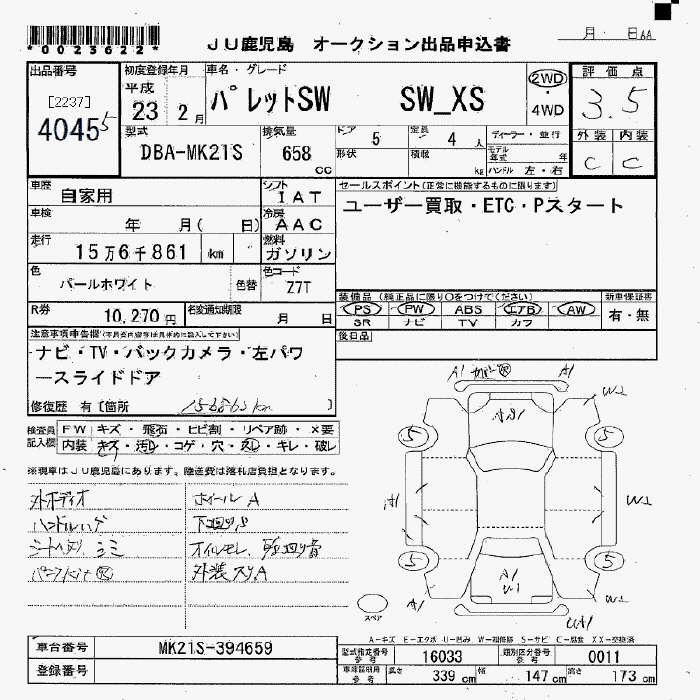 *0023622*
JU鹿児島 オークション出品申込書
月 日 AA
出品番号 初度登録年月 車名・グレード 評価点
[2237] 平成 パレットSW SW_XS 2WD 3.5
4045 5 23 2月 4WD
型式 排気量 ドア 5 定員 4人 ディーラー・並行 外装 内装
DBA-MK21S 658 cc 形状 積載 kg モデル年式 年 C C
ハンドル 左・右
車歴 自家用 シフト IAT セールスポイント(正常に機能するものに限ります)
車検 年 月( 日) 冷房 AAC ユーザー買取・ETC・Pスタート
走行 15万6千861 km 燃料 ガソリン
色 パールホワイト 色替 色コード Z7T
装備品(純正品に限り○をつけてください) 新車保証書
R券 10,270円 名変通知期限 月 日 PS PW ABS エアB AW 有・無
SR ナビ TV カワ
後日品
注意事項申告欄
ナビ・TV・バックカメラ・左パワ
ースライドドア
修復歴 有〔箇所 〕
検査員記入欄 FW キズ・飛石・ヒビ割・リペア跡・×要
内装 キズ・汚れ・コゲ・穴・スレ・キレ・破レ
※現車はJU鹿児島にあります。陸送費は落札店負担となります。
外オーディオ ホイールA
ハンドルハゲ 下回りサビ
オイルモレ
外装スリA
A1 A1
A1 W2
5 5
A1 W2
5 5
A1 W1
A1 UA1
スペア
A-キズ E-エクボ U-凹み W-補修跡 S-サビ C-腐食 XX-交換済
車台番号 MK21S-394659 型式指定番号 参考 16033 類別区分番号 参考 0011
登録番号 長さ 339 cm 幅 147 cm 高さ 173 cm